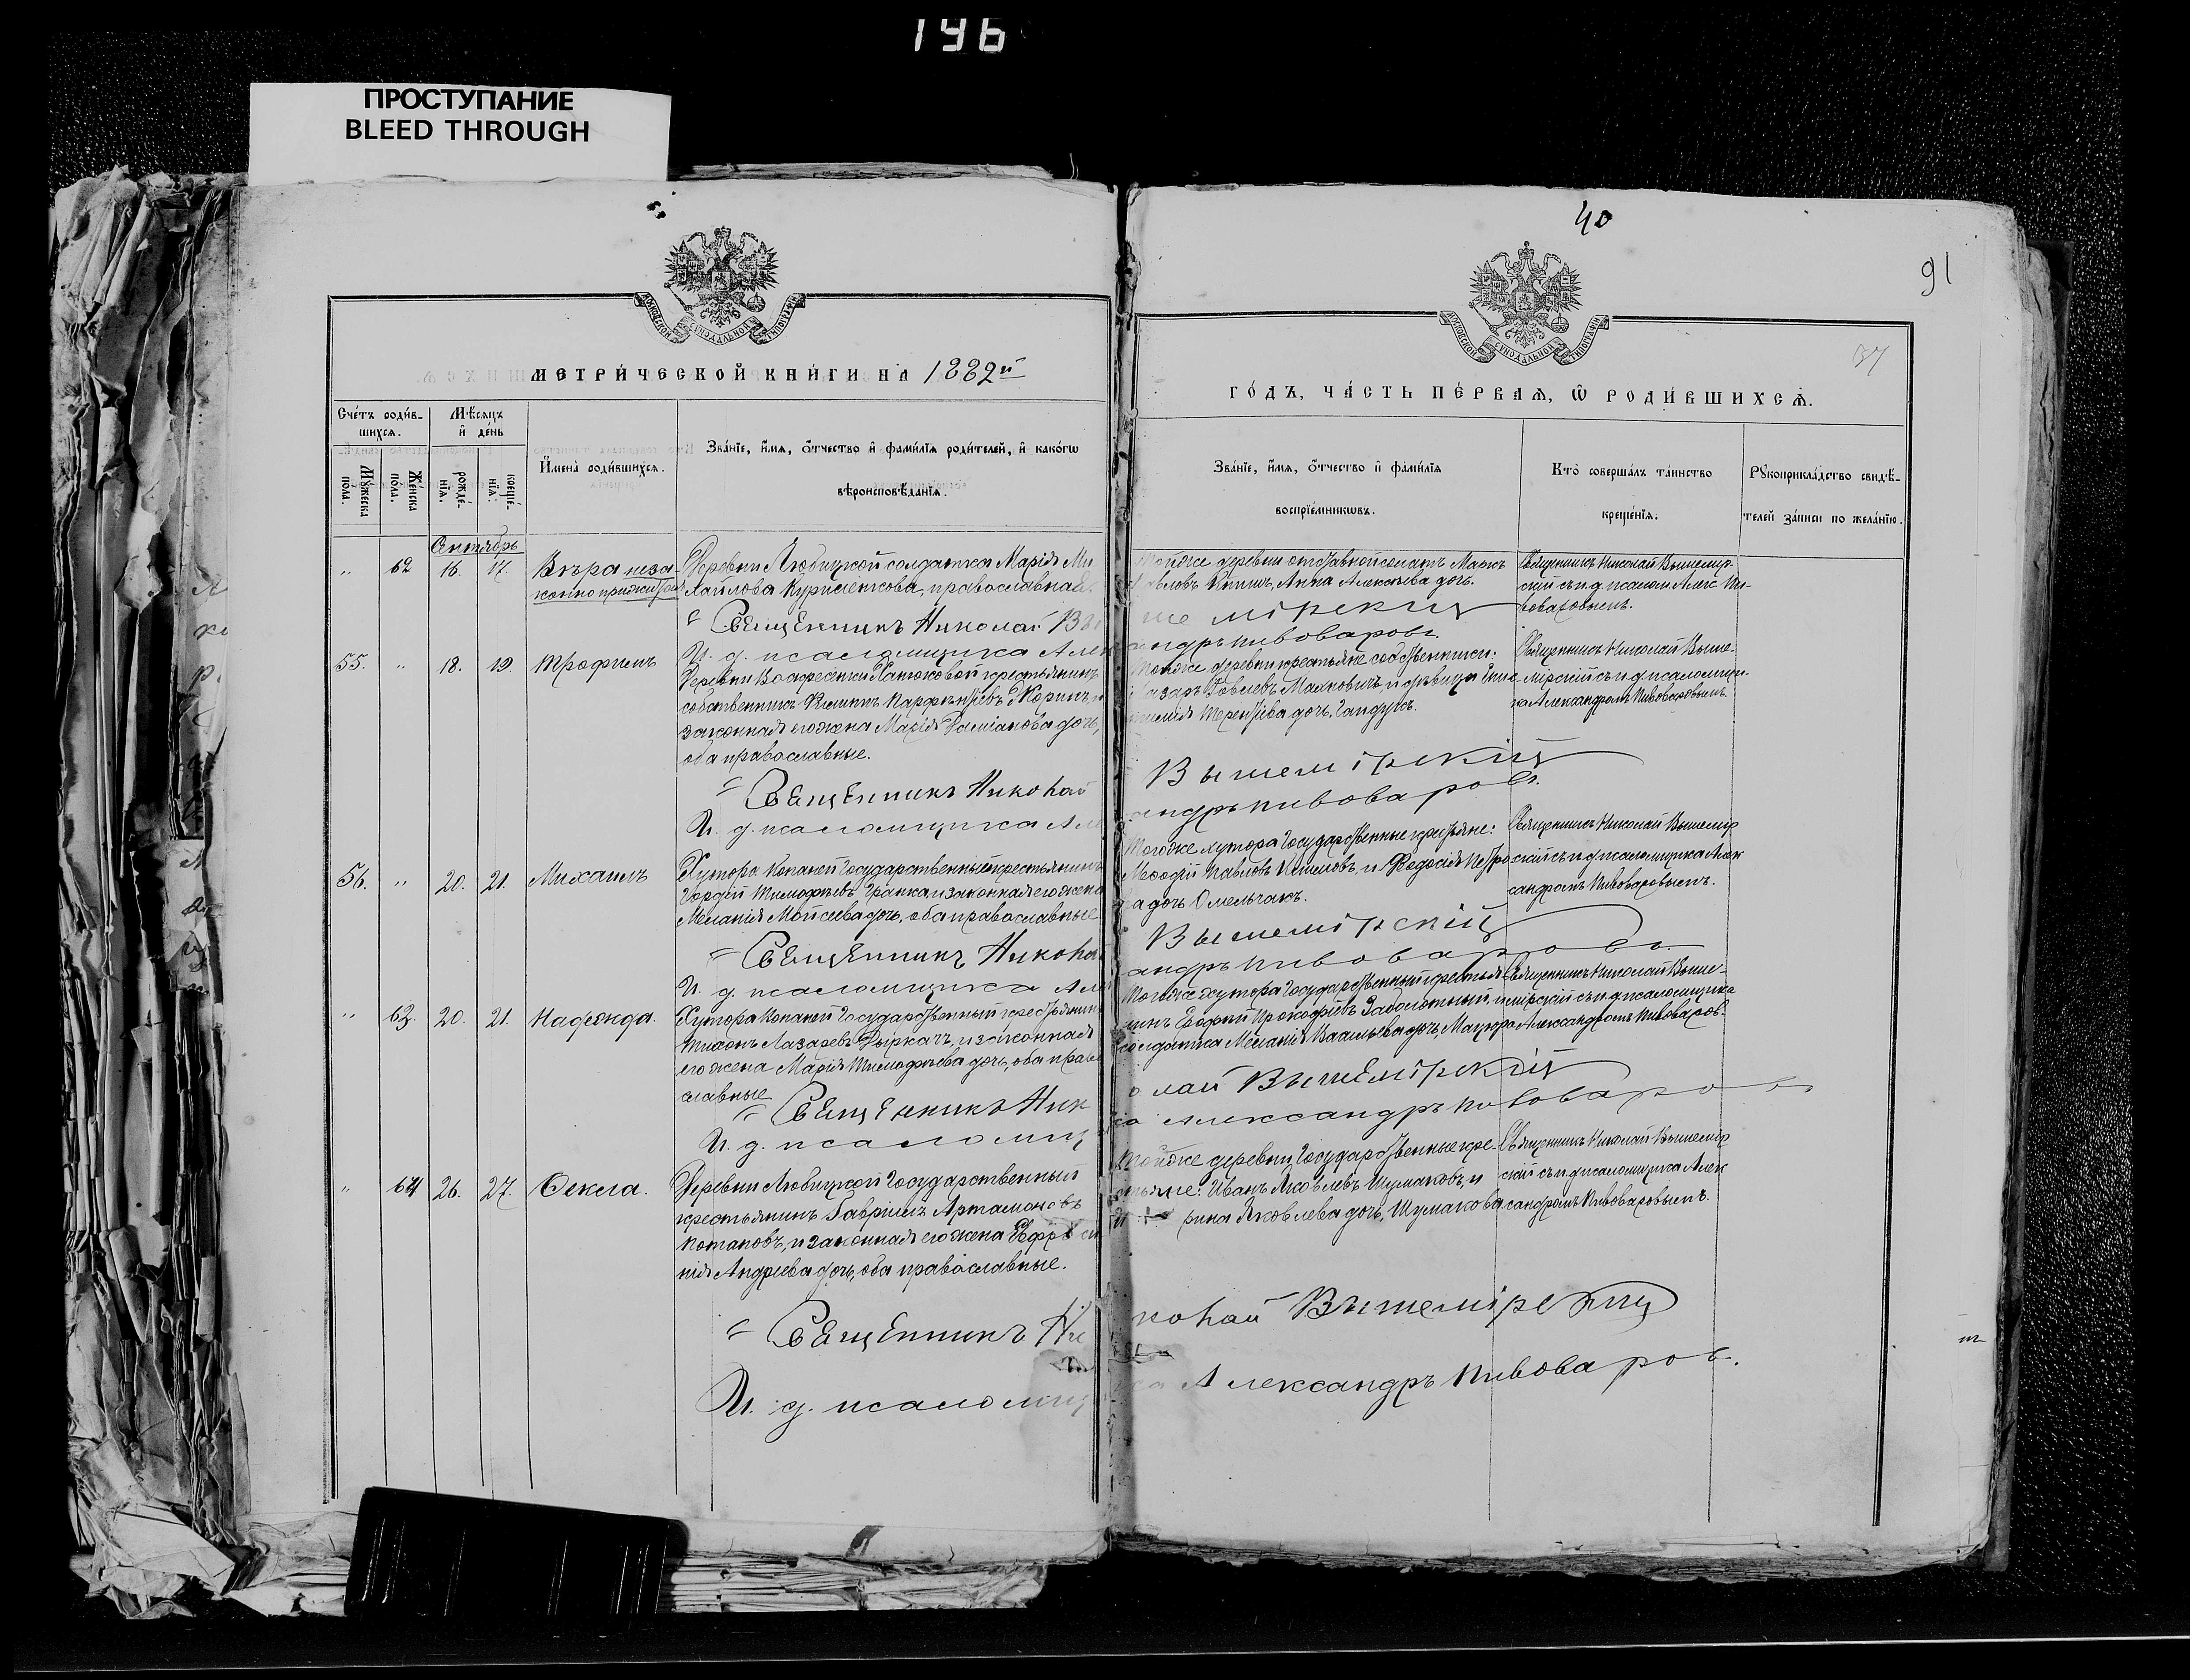 196
ПРОСТУПАНИЕ
BLEED THROUGH
40
91
37
МЕТРИ́ЧЕСКОЙ КНИ́ГИ НА 1882й
ГО́ДЪ, ЧА́СТЬ ПЕ́РВАѦ, Ѡ҆ РОДИ́ВШИХСѦ.
Сче́тъ роди́в-
шихся.
Мѣ́сяцъ
и҆ де́нь
Мꙋ́жеска
по́ла.
Же́нска
по́ла.
рожде́-
нїя.
креще́-
нїя.
И҆мена̀ роди́вшихся.
Зва́нїе, и҆́мя, ѻ҆́тчество и҆ фами́лїя роди́телей, и҆ како́гѡ
вѣроисповѣ́данїя.
Зва́нїе, и҆́мя, ѻ҆́тчество и҆ фами́лїя
воспрїе́мникѡвъ.
Кто̀ соверша́лъ та́инство
креще́нїя.
Рꙋкоприкла́дство свидѣ́-
телей за́писи по жела́нїю.
Октябрь
„ 62 16. 17. Вѣра неза-
конно прижитая
Деревни Любицкой солдатка Марія Ми
хайлова Курисенкова, православная.
Тойже деревни отставной солдатъ
Анна Алексѣева дочь.
Священникъ Николай Вышемір-
скій съ и. д. псалом. Алек. Пи-
воваровымъ.
Священникъ Николай Вы
шемірскій
И. д. псаломщика Алек
андръ Пивоваровъ.
55. „ 18. 19. Трофимъ
Деревни крестьянинъ
собственникъ Филиппъ
законная его жена Марія Даміанова дочь,
оба православные.
Тойже деревни крестьяне собственники:
Лазарь и дѣвица
Терентіева дочь, Гандусъ.
Священникъ Николай Выше-
мірскій съ и. д. псаломщи-
ка Александромъ Пивоваровымъ.
Священникъ Николай
Вышемірскій
И. д. псаломщика Але
андръ Пивоваровъ.
56. „ 20. 21. Михаилъ
Хутора Копаней Государственный крестьянинъ
Гордій Тимофѣевъ и законная его жена
Меланія Мойсеева дочь, оба православные
Тогоже хутора Государственные крестьяне:
Павловъ и Феодосія Петро
ва дочь Омельчакъ.
Священникъ Николай Вышемір
скій съ и. д. псаломщика Алек
сандромъ Пивоваровымъ.
Священникъ Никола
Вышемірскій
И. д. псаломщика Але
андръ Пивоваровъ.
„ 63. 20. 21. Надежда.
Хутора Копаней Государственный крестьянин
Тихонъ Лазаревъ Дыркачъ, и законная
его жена Марія Тимофѣева дочь, оба право
славные
Тогоже хутора Государственный крестья
нинъ Прокофіевъ Заболотный, и
солдатка Меланія Васильева дочь,
Священникъ Николай Выше-
мірскій съ и. д. псаломщика
Александромъ Пивоваров.
Священникъ Ник
олай Вышемірскій
И. д. псаломщ
ка Александръ Пивоваровъ
„ 64 26. 27. Ѳекла.
Деревни Любицкой Государственный
крестьянинъ Гавріилъ Артамоновъ
Потаповъ, и законная его жена Евфроси
нія Андреева дочь, оба православные.
Тойже деревни, Государственные кре-
стьяне: Иванъ Яковлевъ Шумаковъ, и
рина Яковлева дочь, Шумакова.
Священникъ Николай Вышемір
скій съ и. д. псаломщика Алек
сандромъ Пивоваровымъ.
Священникъ Ни
колай Вышемірскій
И. д. псаломщ
ка Александръ Пивоваров.